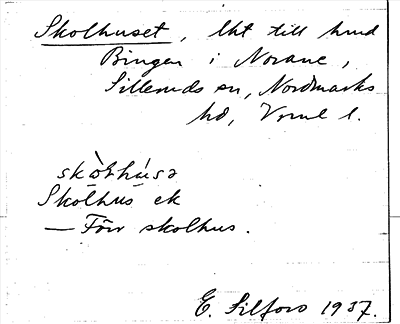 Skolhuset, lht till hmd
Bingen i Norane,
Silleruds sn, Nordmarks
hd, Vrml l.
skòthúsə
Skolhus ek
— Förr skolhus.
E. Silfors 1937.